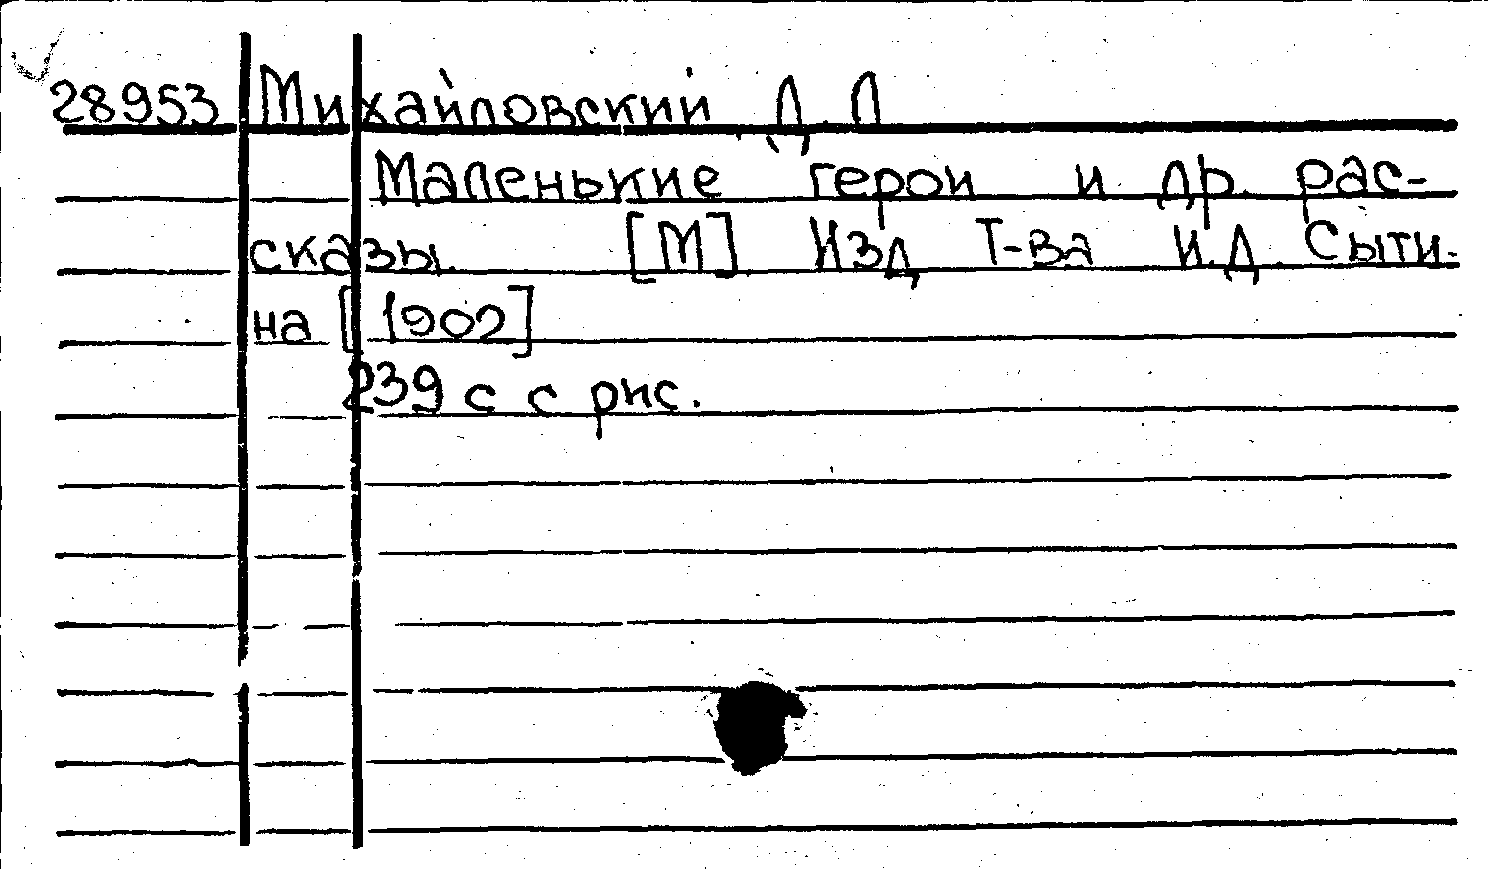 28953 Михайловский Д.Л
Маленькие герои и др. рас-
сказы. [М]. Изд Т-ва И.Д. Сыти-
на [1902]
239 с с рис.